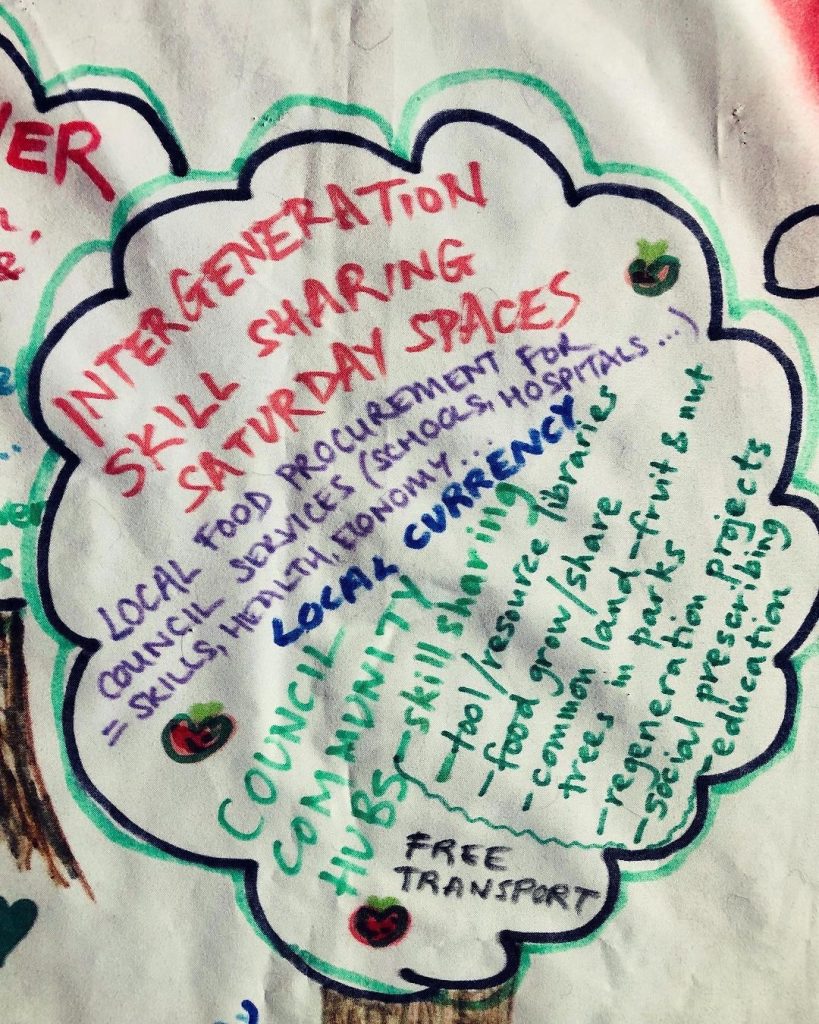 INTERGENERATION
SKILL SHARING
SATURDAY SPACES
LOCAL FOOD PROCUREMENT FOR
COUNCIL SERVICES (SCHOOLS, HOSPITALS...)
= SKILLS, HEALTH, ECONOMY...
LOCAL CURRENCY
COUNCIL
COMMUNITY
HUBS
- skill sharing
- tool/resource libraries
- food grow/share
- common land - fruit & nut
trees in parks
- regeneration projects
- social prescribing
- education
FREE
TRANSPORT